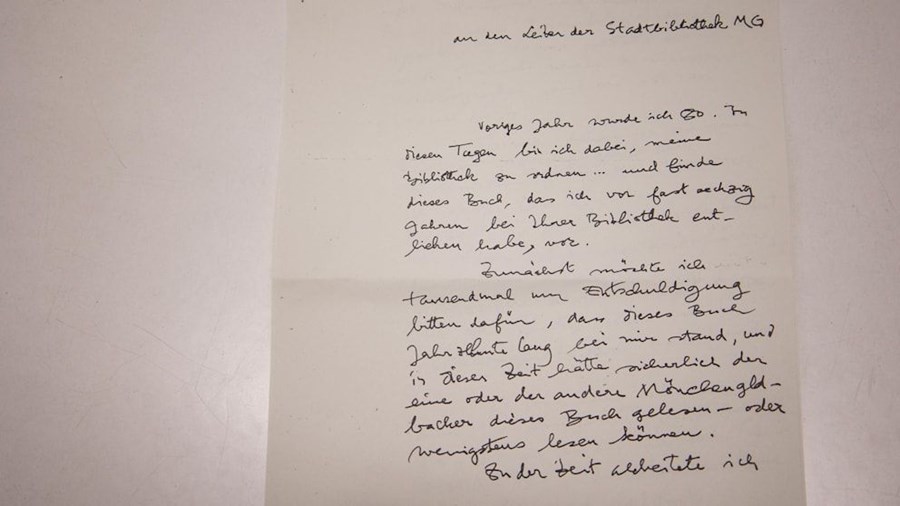 an den Leiter der Stadtbibliothek MG
Voriges Jahr wurde ich 80. In
diesen Tagen bin ich dabei, meine
Bibliothek zu ordnen ... und finde
dieses Buch, das ich vor fast sechzig
Jahren bei Ihrer Bibliothek ent-
liehen habe, vor.
Zunächst möchte ich
tausendmal um Entschuldigung
bitten dafür, dass dieses Buch
Jahrzehnte lang bei mir stand, und
in dieser Zeit hätte sicherlich der
eine oder der andere Mönchengld-
bacher dieses Buch gelesen – oder
wenigstens lesen können.
Zu der Zeit arbeitete ich